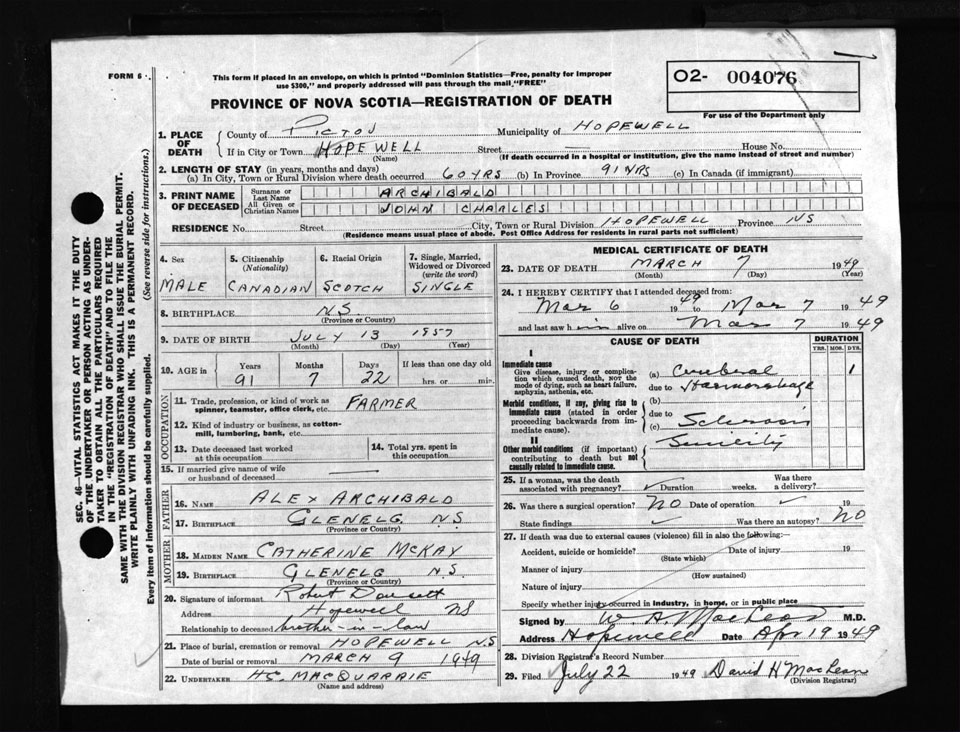 FORM 6.
This form if placed in an envelope, on which is printed "Dominion Statistics—Free, penalty for improper
use $300," and properly addressed will pass through the mail "FREE"
O2- 004076
For use of the Department only
PROVINCE OF NOVA SCOTIA—REGISTRATION OF DEATH
1. PLACE OF DEATH { County of PICTOU Municipality of HOPEWELL
If in City or Town HOPEWELL (Name) Street — House No.
(If death occurred in a hospital or institution, give the name instead of street and number)
2. LENGTH OF STAY (in years, months and days)
(a) In City, Town or Rural Division where death occurred 60 YRS (b) In Province 91 YRS (c) In Canada (if immigrant)
3. PRINT NAME OF DECEASED { Surname or Last Name ARCHIBALD
All Given or Christian Names JOHN CHARLES
RESIDENCE No. Street City, Town or Rural Division HOPEWELL Province NS
(Residence means usual place of abode. Post Office Address for residents in rural parts not sufficient)
4. Sex MALE
5. Citizenship (Nationality) CANADIAN
6. Racial Origin SCOTCH
7. Single, Married, Widowed or Divorced (write the word) SINGLE
8. BIRTHPLACE N.S.
(Province or Country)
9. DATE OF BIRTH JULY 13 1857
(Month) (Day) (Year)
10. AGE IN { Years 91 Months 7 Days 22 If less than one day old hrs. or min.
OCCUPATION
11. Trade, profession, or kind of work as spinner, teamster, office clerk, etc. FARMER
12. Kind of industry or business, as cotton-mill, lumbering, bank, etc.
13. Date deceased last worked at this occupation
14. Total yrs. spent in this occupation
15. If married give name of wife or husband of deceased —
FATHER
16. NAME ALEX ARCHIBALD
17. BIRTHPLACE GLENELG N.S.
(Province or Country)
MOTHER
18. MAIDEN NAME CATHERINE MCKAY
19. BIRTHPLACE GLENELG N.S.
(Province or Country)
20. Signature of informant Robert
Address Hopewell NS
Relationship to deceased brother-in-law
21. Place of burial, cremation or removal HOPEWELL N.S
Date of burial or removal MARCH 9 1949
22. UNDERTAKER HS. MACQUARRIE
(Name and address)
MEDICAL CERTIFICATE OF DEATH
23. DATE OF DEATH MARCH 7 1949
(Month) (Day) (Year)
24. I HEREBY CERTIFY that I attended deceased from:
Mar 6 1949 to Mar 7 1949
and last saw him alive on Mar 7 1949
CAUSE OF DEATH
DURATION
YRS. MOS. DYS.
I
Immediate cause
Give disease, injury or complication which caused death, NOT the mode of dying, such as heart failure, asphyxia, asthenia, etc.
(a) Cerebral 1
due to Haemorrhage
Morbid conditions, if any, giving rise to immediate cause (stated in order proceeding backwards from immediate cause).
(b)
due to
(c) Sclerosis
II
Other morbid conditions (if important) contributing to death but not causally related to immediate cause.
Senility
25. If a woman, was the death associated with pregnancy? Duration weeks. Was there a delivery?
26. Was there a surgical operation? NO Date of operation 19
State findings Was there an autopsy? NO
27. If death was due to external causes (violence) fill in also the following:—
Accident, suicide or homicide? Date of injury 19
(State which)
Manner of injury
(How sustained)
Nature of injury
Specify whether injury occurred in industry, in home, or in public place
Signed by W. A. MacLeod M.D.
Address Hopewell Date Apr 19 1949
28. Division Registrar's Record Number
29. Filed July 22 1949 David H MacLean
(Division Registrar)
SEC. 46—VITAL STATISTICS ACT MAKES IT THE DUTY
OF THE UNDERTAKER OR PERSON ACTING AS UNDER-
TAKER TO OBTAIN ALL THE PARTICULARS REQUIRED
IN THE "REGISTRATION OF DEATH" AND TO FILE THE
SAME WITH THE DIVISION REGISTRAR WHO SHALL ISSUE THE BURIAL PERMIT.
WRITE PLAINLY WITH UNFADING INK. THIS IS A PERMANENT RECORD.
Every item of information should be carefully supplied. (See reverse side for instructions.)